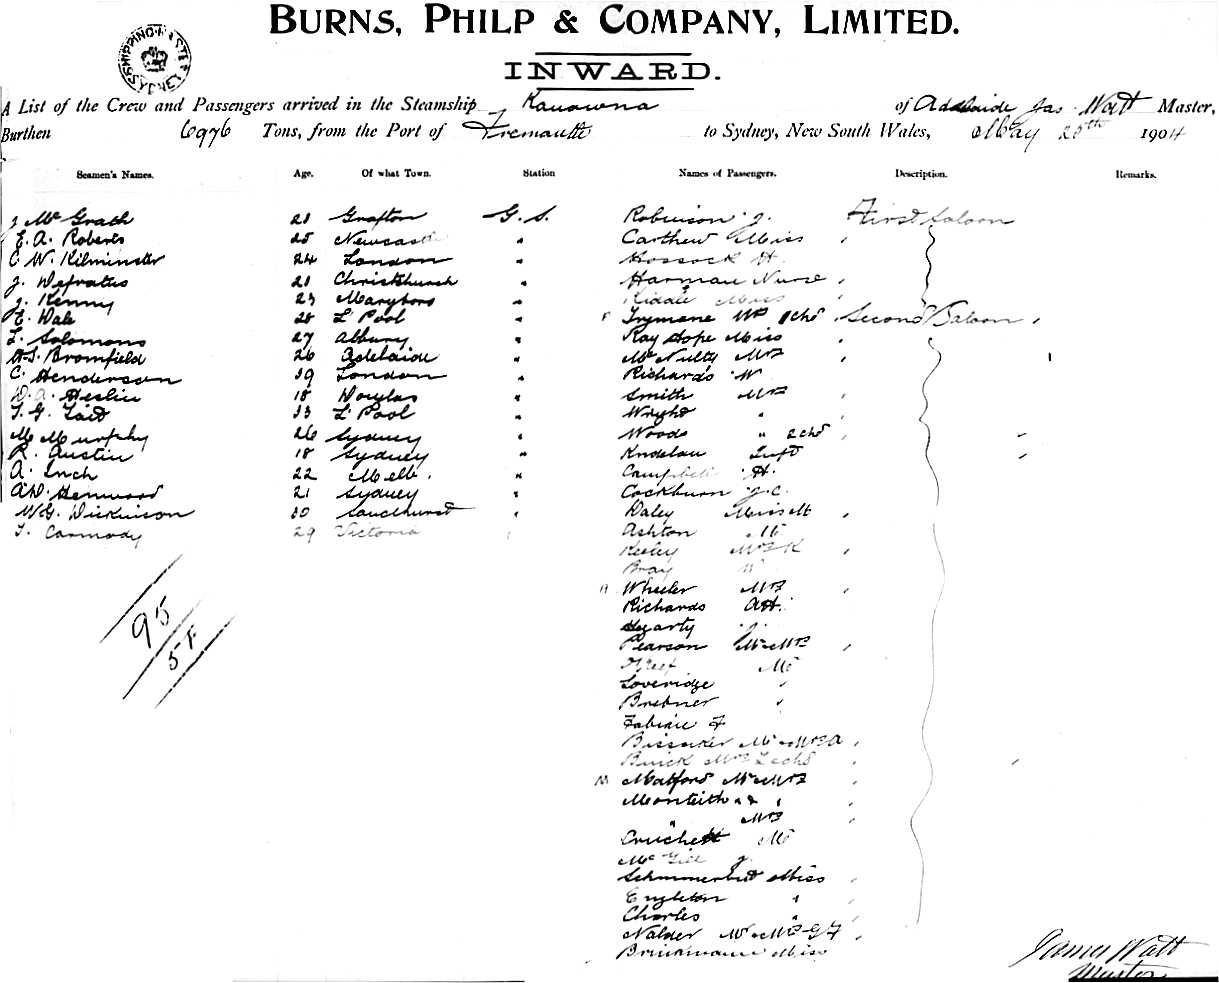 BURNS, PHILP & COMPANY, LIMITED.
SHIPPING MASTER SYDNEY
INWARD.
A List of the Crew and Passengers arrived in the Steamship Kanowna of Adelaide Jas. Watt Master,
Burthen 6976 Tons, from the Port of Fremantle to Sydney, New South Wales, May 20th 1904
Seamen's Names. Age. Of what Town. Station Names of Passengers. Description. Remarks.
J McGrath 21 Grafton G. S. Robinson J. First Saloon
E. A. Roberts 25 Newcastle " Carthew Miss
C. W. Kilminster 24 London " Hossock H.
J. Defratus 21 Christchurch " Harman Nurse
J. Kenny 23 Maryboro " Riddle Miss
E. Dale 28 L'Pool " Trymane Mrs 1 chd Second Saloon
L. Solomons 27 Albury " Ray Hope Miss
H.S. Bromfield 26 Adelaide " McNulty Mrs
C. Henderson 39 London " Richards W
D. A. Heslin 18 Douglas " Smith Mrs
T. G. Tait 33 L'Pool " Wright "
M Murphy 26 Sydney " Woods " 2 chd
R. Austin 18 Sydney "
A. Inch 22 Melb. " Campbell H.
A.W. Henwood 21 Sydney " Cockburn J.C.
W.G. Dickinson 30 Sandhurst " Daley Miss M
T. Carmody 29 Victoria " Ashton Mr
Keeley Mrs K
Bray W
Wheeler Mrs
Richards A.H.
Hegarty J.
Pearson Mr & Mrs
Mr
Loveridge "
Brebner "
F
Mr & Mrs A
Buick Mrs 2 chd
Matford Mr & Mrs
Monteith " & "
" Mrs
Cruchett Mr
McGill J.
Miss
Engleton "
Charles "
Nalder Mr & Mrs G F
Brinkmann Miss
95
51.
James Watt
Master